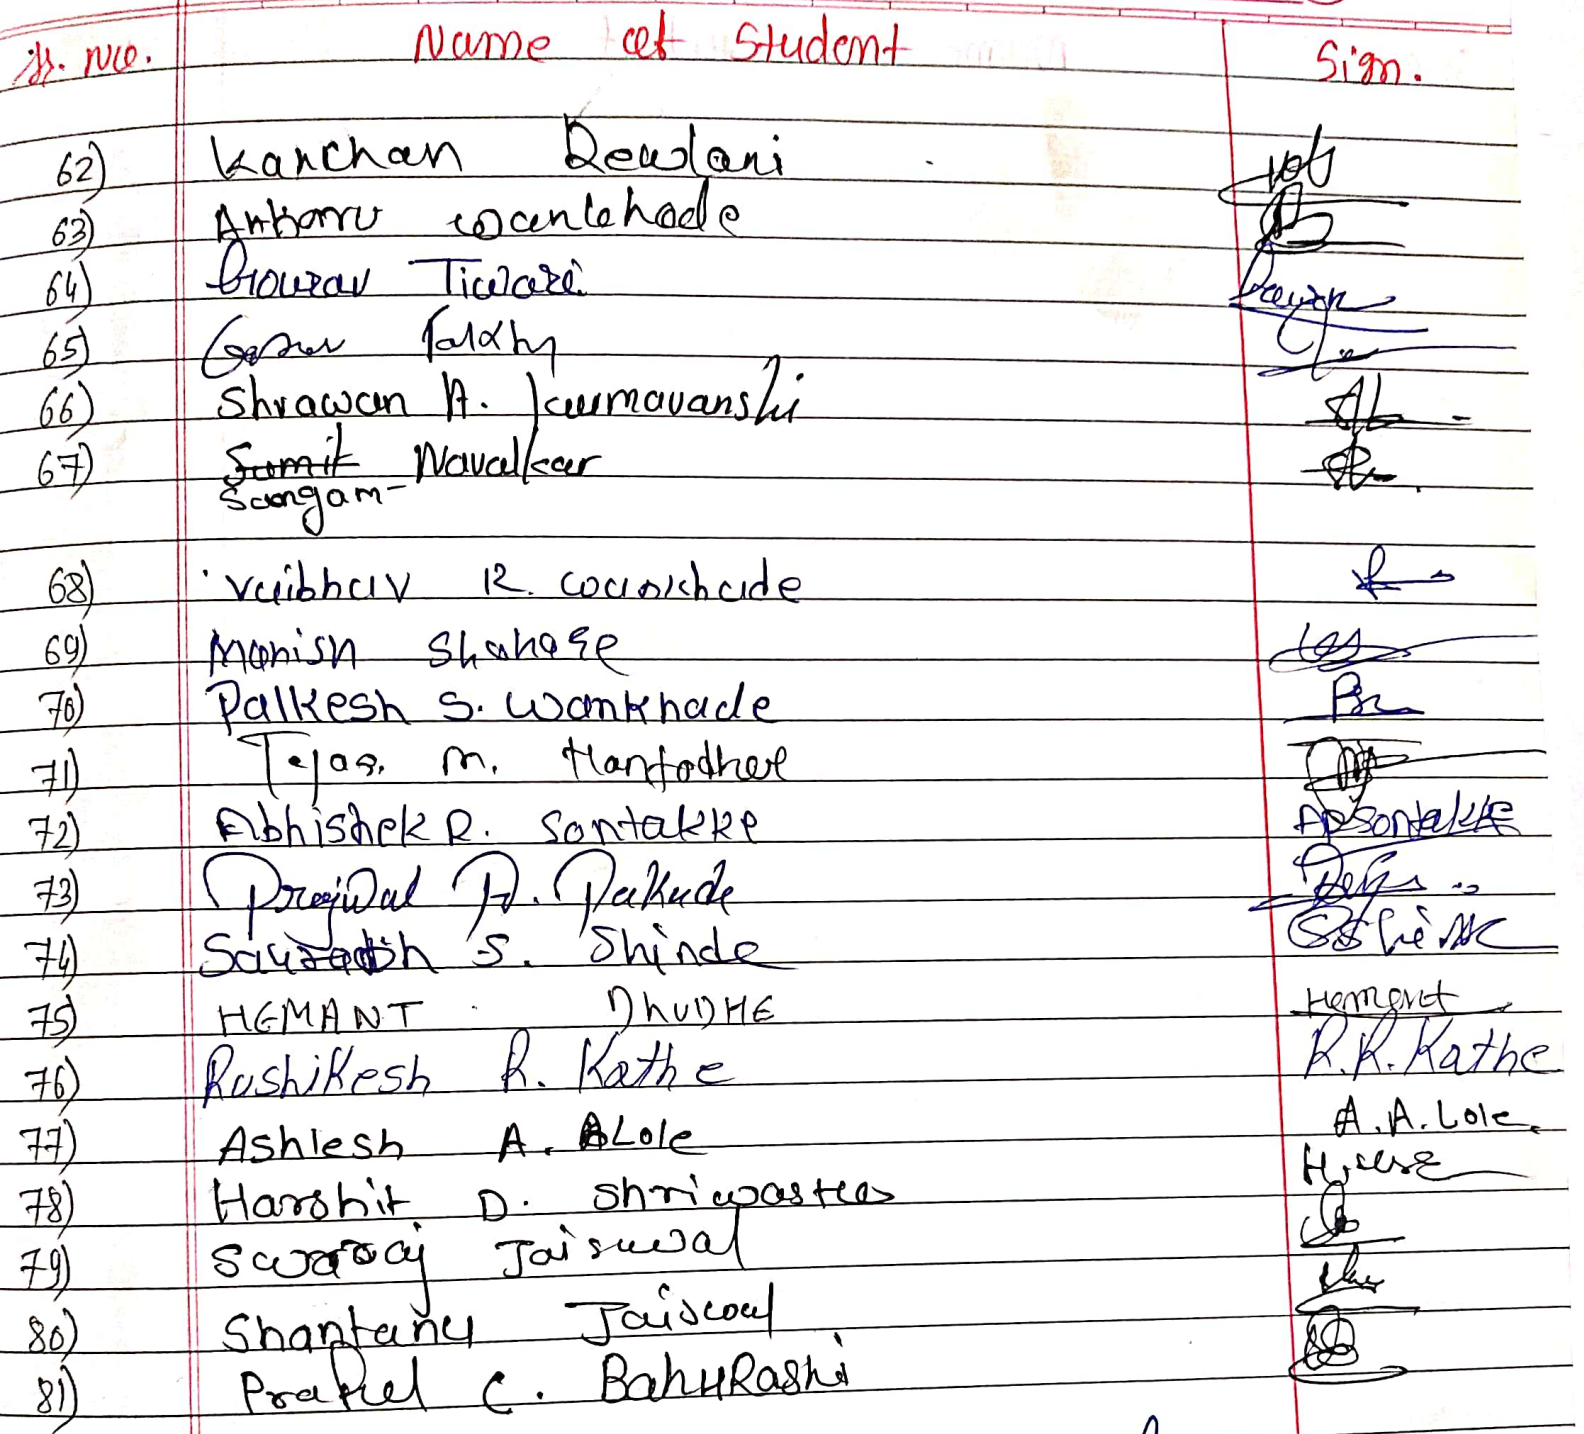 Sr. No. Name of Student Sign.
62) Kanchan Dewlani
63) wankhade
64) Gourav Tiwari
65)
66) Shrawan A. Kurmavanshi
67) Sumit Navalkar
Sangam
68) Vaibhav R. wankhade
69) Manish Shahare
70) Palkesh S. Wankhade
71) Tejas. M. Hantodkar
72) Abhishek R. Sontakke APSontakke
73) Prajwal D. Dakude
74) Saurabh S. Shinde
75) HEMANT DhUDHE Hemant
76) Rushikesh R. Kathe R.R.Kathe
77) Ashlesh A. Lole A.A.Lole.
78) Harshit D. Shriwastav
79) Swaraj Jaiswal
80) Shantanu Jaiswal
81) C. BahuRashi